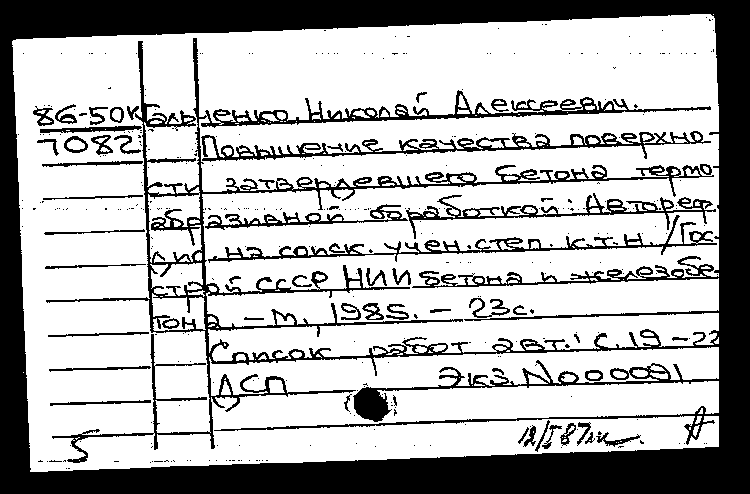 86-50к Гальченко, Николай Алексеевич.
7082 Повышение качества поверхно-
сти затвердевшего бетона термо-
абразивной обработкой: Автореф.
дис. на соиск. учен. степ. к.т.н. / Гос-
строй СССР, НИИ бетона и железобе-
тона. – М., 1985. – 23с.
Список работ авт.: с. 19-22
ДСП Экз. N000091
5 12/I 87